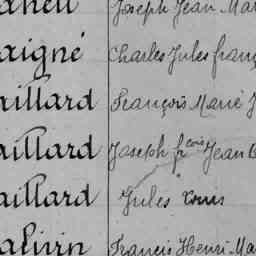 Joseph Jean
aigné Charles Jules
aillard François Marie J
aillard Joseph fçois Jean
aillard Jules Louis
Francis Henri Ma